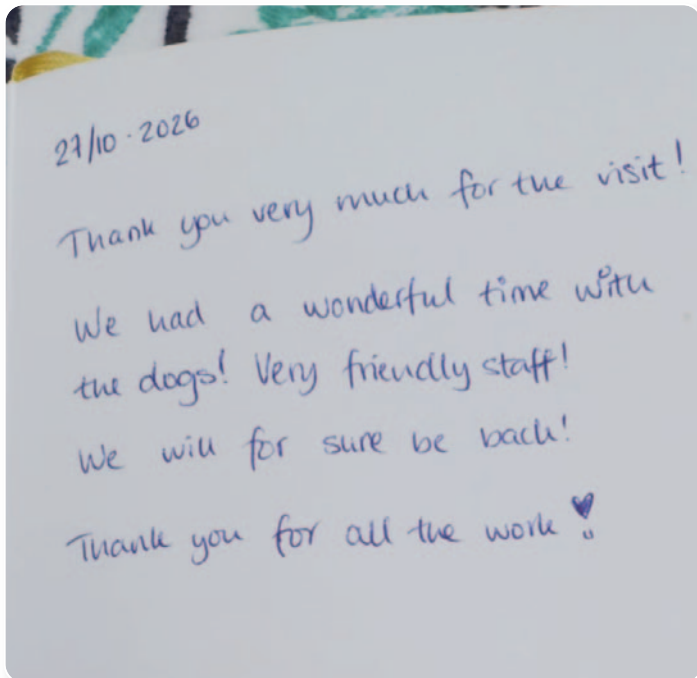 27/10.2026
Thank you very much for the visit!
We had a wonderful time with
the dogs! Very friendly staff!
We will for sure be back!
Thank you for all the work!